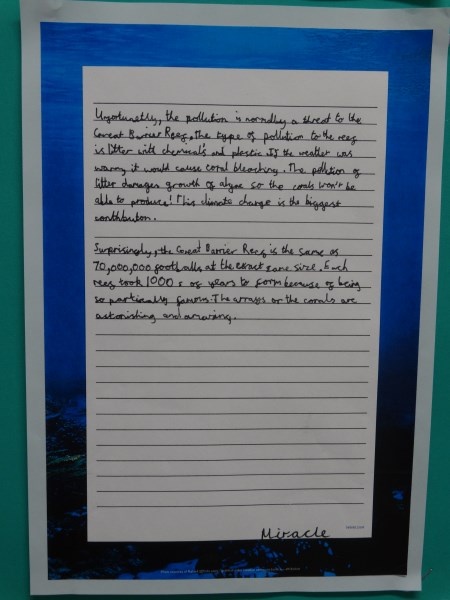 Unfortunatly, the pollution is normally a threat to the
Great Barrier Reef. The type of pollution to the reef
is litter with chemicals and plastic. If the weather was
warmy it would cause coral bleaching. The pollution of
litter damages growth of algae so the corals won't be
able to produce! This climate change is the biggest
contributon.
Surprisingly, the Great Barrier Reef is the same as
70,000,000 footballs at the exact same size. Each
reef took 1000 s of years to form because of being
so particially famous. The arrays or the corals are
astonishing and amazing.
Miracle